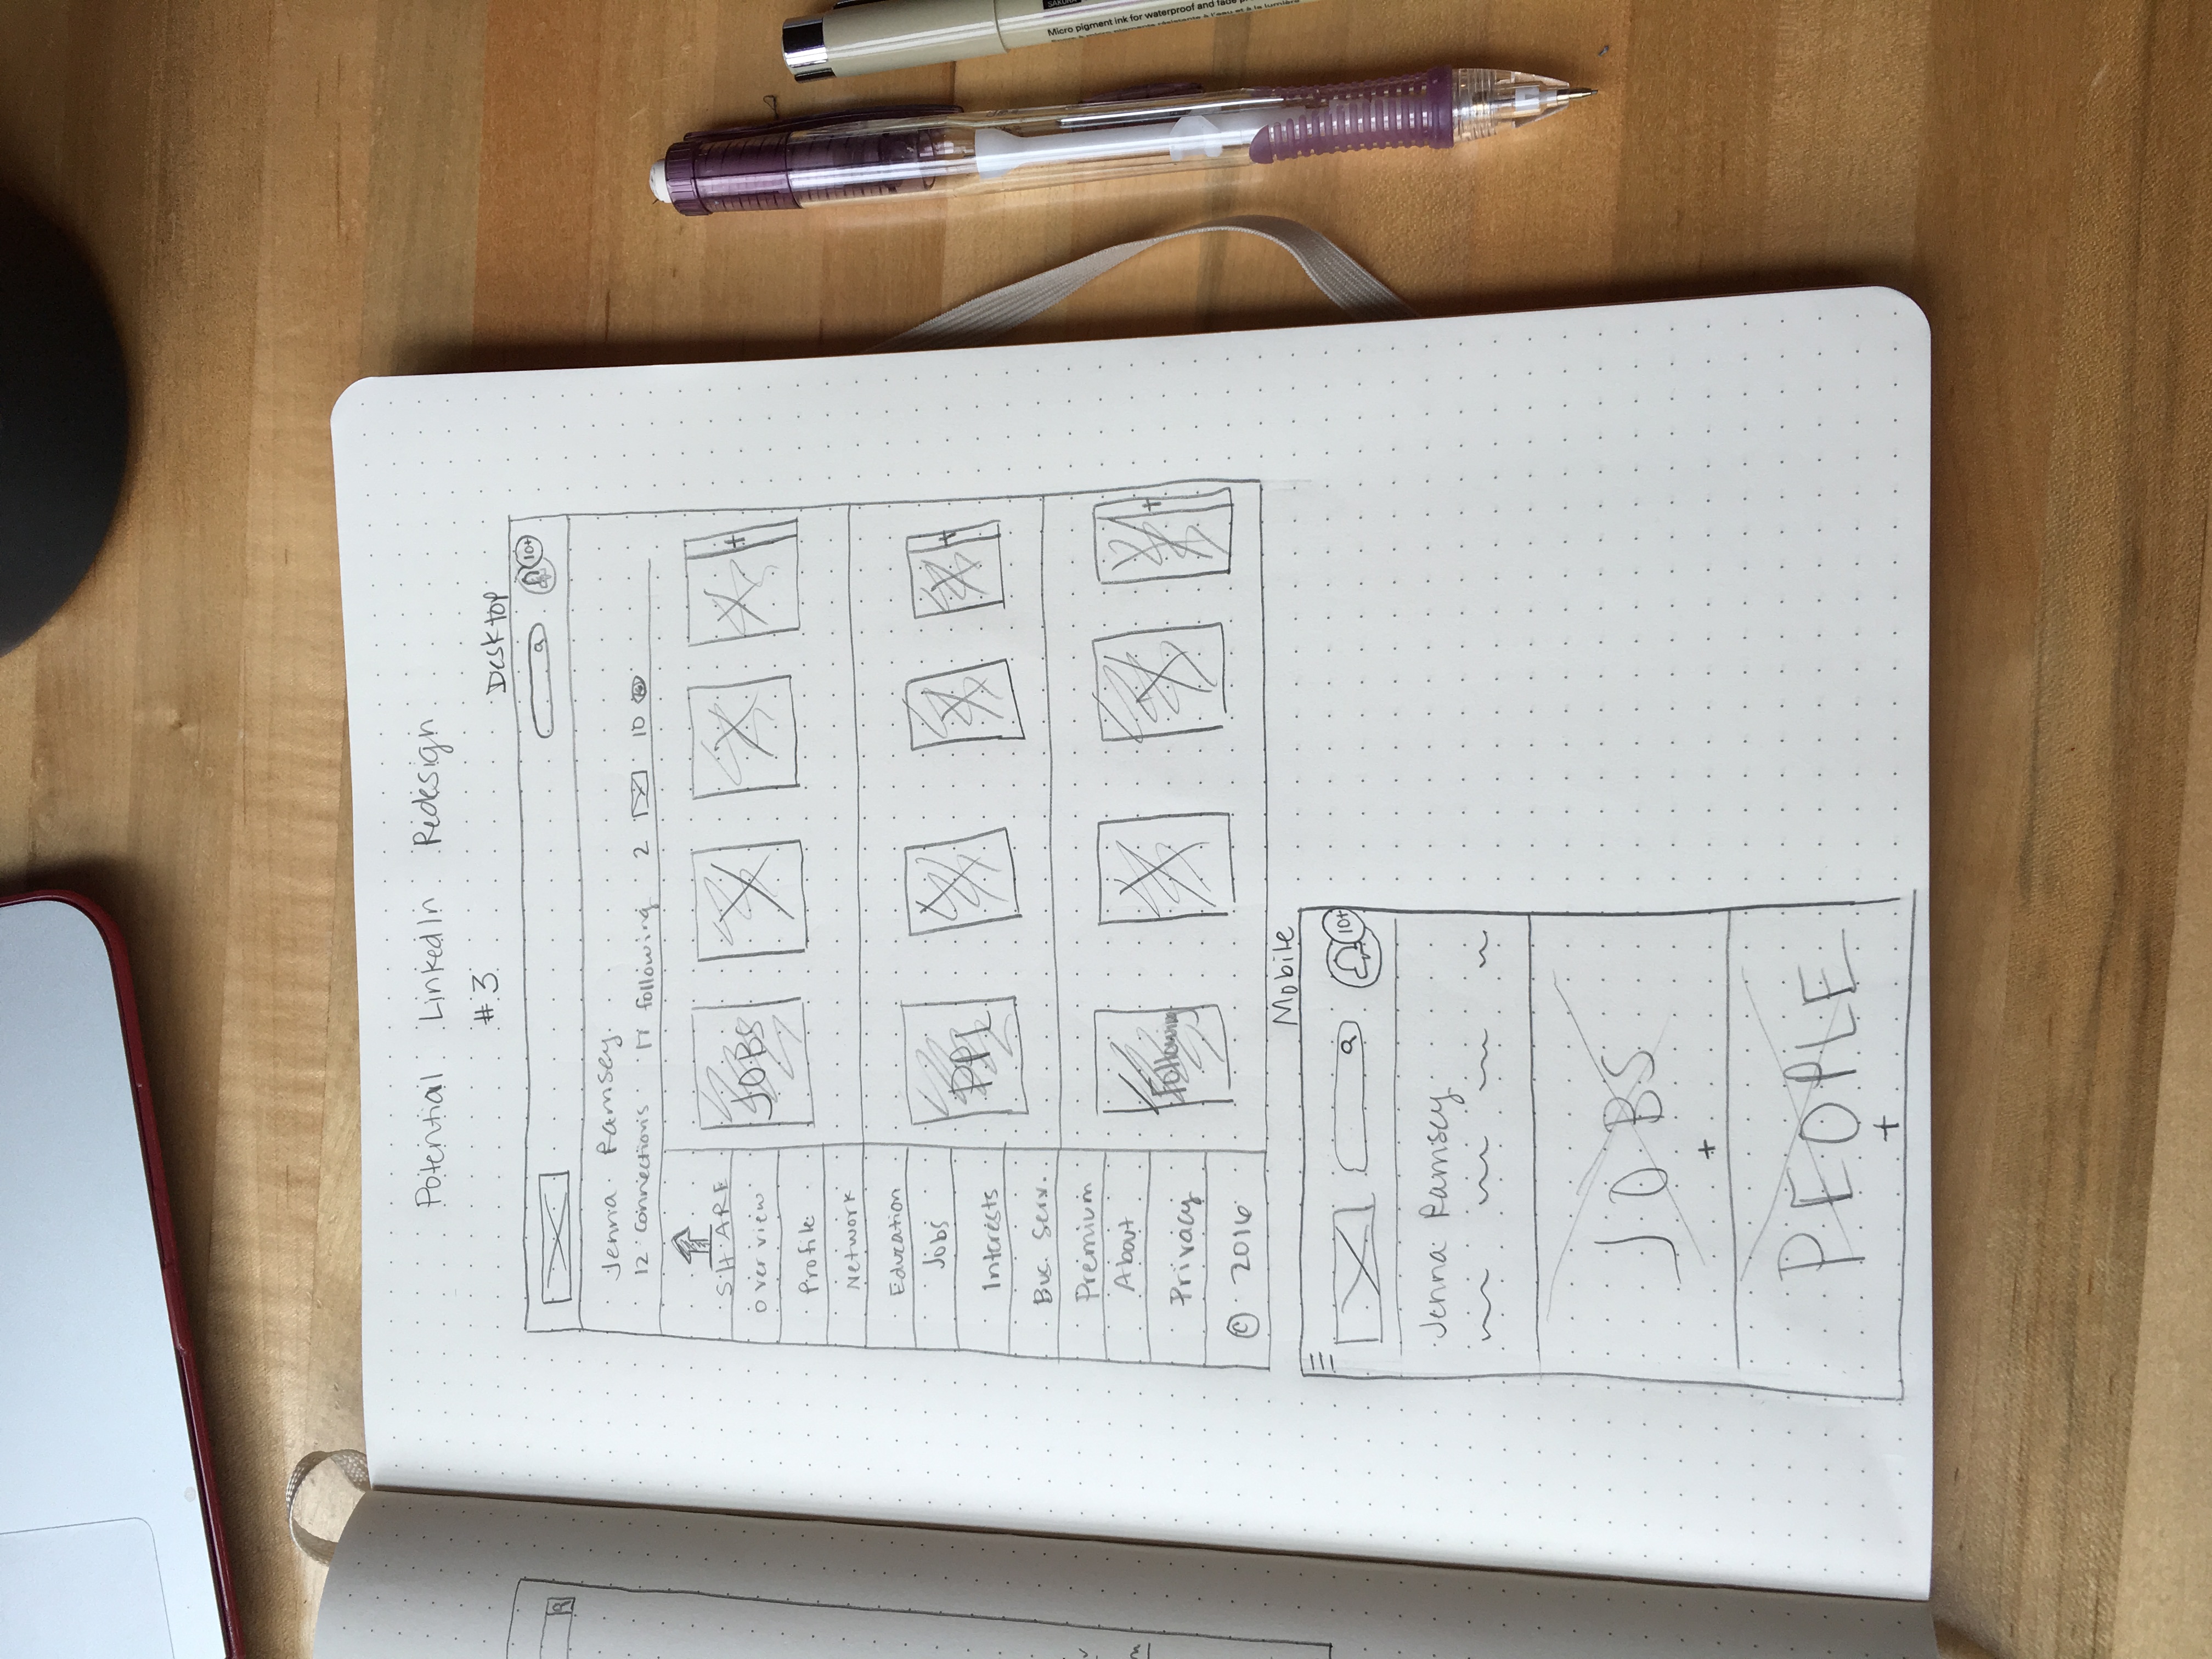 Potential LinkedIn Redesign
#3
Desktop
10+
Jenna Ramsey
12 connections 17 following 2 10
SHARE
overview
Profile
Network
Education
Jobs
Interests
Bus. Serv.
Premium
About
Privacy
© 2016
JOBS
+
PPL
+
Following
+
Mobile
10+
Jenna Ramsey
JOBS
+
PEOPLE
+
Micro pigment ink for waterproof and fade